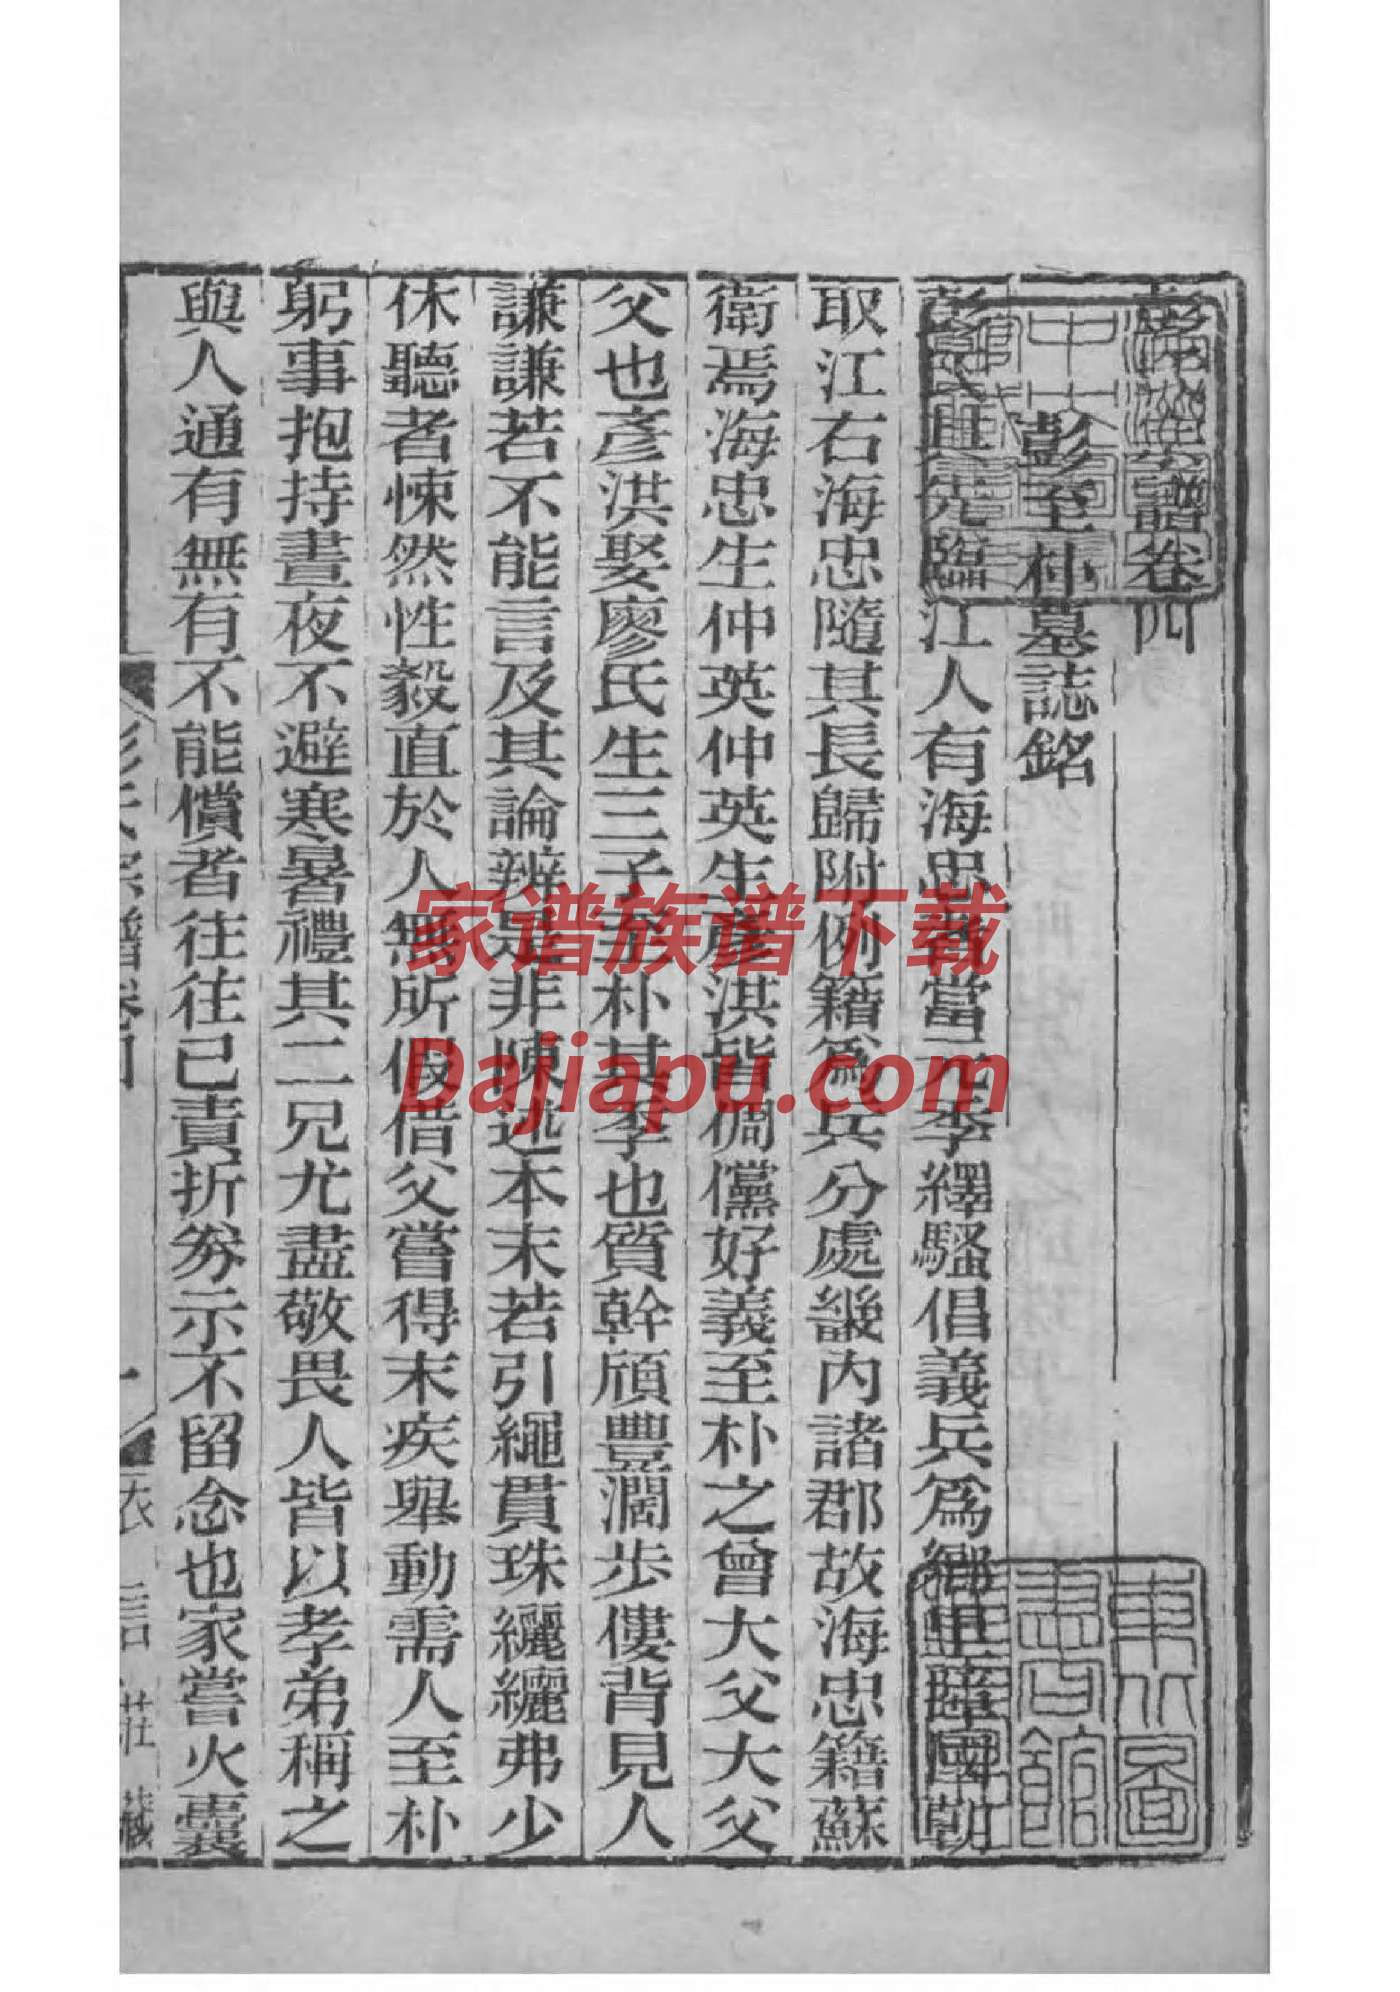 彭氏宗譜卷四
彭至朴墓誌銘
彭氏其先臨江人有海忠者當元季繹騷倡義兵爲鄉里障國朝
取江右海忠隨其長歸附例籍爲兵分處畿内諸郡故海忠籍蘇
衛焉海忠生仲英仲英生彥淇皆倜儻好義至朴之曾大父大父
父也彥淇娶廖氏生三子至朴其季也質幹頎豐濶步僂背見人
謙謙若不能言及其論辨是非陳述本末若引繩貫珠纚纚弗少
休聽者悚然性毅直於人無所假借父嘗得末疾舉動需人至朴
躬事抱持晝夜不避寒暑禮其二兄尤盡敬畏人皆以孝弟稱之
與人通有無有不能償者往往已責折劵示不留念也家嘗火囊
彭氏宗譜卷四
一
衣言莊藏
家谱族谱下载
Dajiapu.com